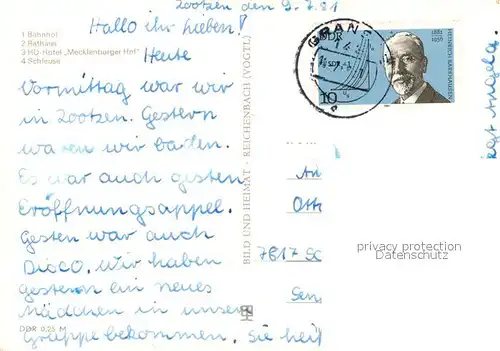 Zootzen den 9.7.81
Hallo ihr lieben!
1 Bahnhof
2 Rathaus
3 HO-Hotel „Mecklenburger Hof"
4 Schleuse
Heute
Vormittag war wir
in Zootzen. Gestern
waren wir baden.
Es war auch gesten
Eröffnungsappel.
Gesten war auch
Disco. Wir haben
gestern ein neues
Mädchen in unser
Gruppe bekommen. Sie heiß
DDR 0,25 M
BILD UND HEIMAT · REICHENBACH (VOGTL)
GRANS
DDR
10
1881
1956
An
7817 Sc
Sen
privacy protection
Datenschutz
Angela